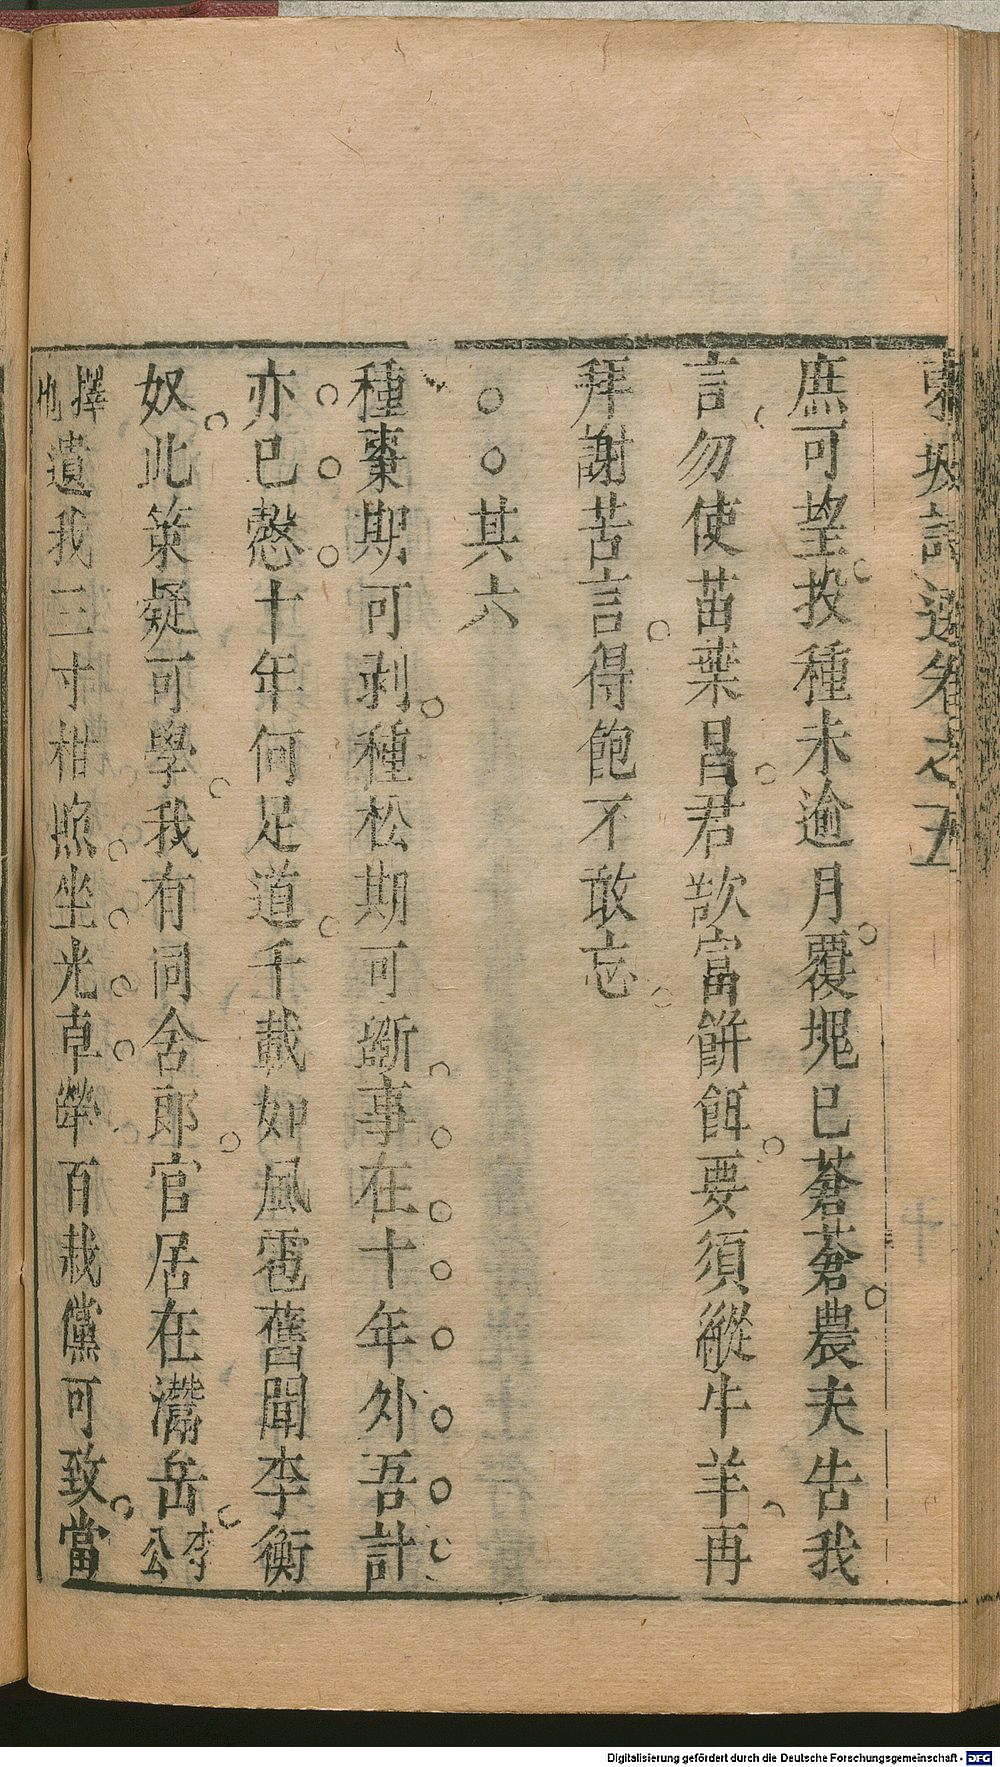 東坡詩選卷之五
庶可望投種未逾月覆塊已蒼蒼農夫告我
言勿使苗葉昌君欲富餅餌要須縱牛羊再
拜謝苦言得飽不敢忘
其六
種棗期可剥種松期可斲事在十年外吾計
亦已慤十年何足道千載如風雹舊聞李衡
奴此策疑可學我有同舍郎官居在灊岳李公
擇也遺我三寸柑照坐光卓犖百栽儻可致當
Digitalisierung gefördert durch die Deutsche Forschungsgemeinschaft - DFG